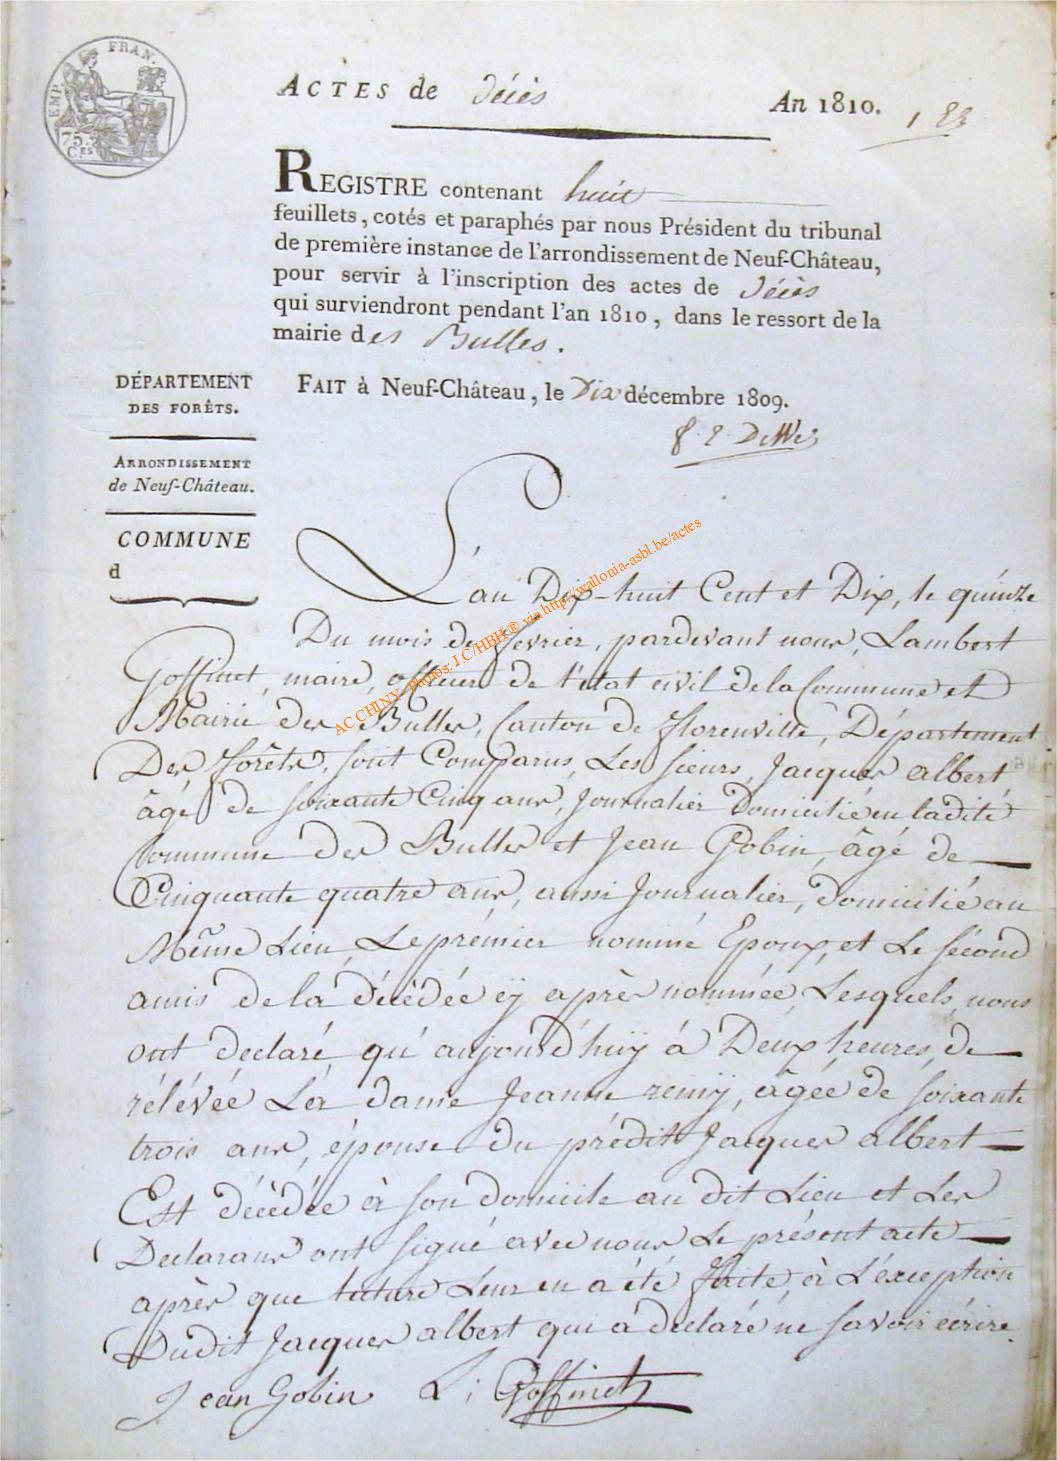 EMP. FRAN.
75. C.es
ACTES de décès An 1810.
REGISTRE contenant huit
feuillets, cotés et paraphés par nous Président du tribunal
de première instance de l'arrondissement de Neuf-Château,
pour servir à l'inscription des actes de décès
qui surviendront pendant l'an 1810, dans le ressort de la
mairie des Bulles.
FAIT à Neuf-Château, le Dix décembre 1809.
DÉPARTEMENT
DES FORÊTS.
ARRONDISSEMENT
de Neuf-Château.
COMMUNE
d
L'an Dix-huit Cent et Dix, le quinze
Du mois de fevrier, pardevant nous, Lambert
Goffinet, maire, officier de l'état civil de la Commune et
Mairie des Bulles, Canton de florenville, Département
Des forêts, sont Comparus, Les sieurs, Jacques albert
âgé de soixante Cinq ans, Journalier Domicilié en ladite
Commune des Bulles et Jean Gobin, âgé de
Cinquante quatre ans, aussi Journalier, Domicilié au
Même Lieu, Le prémier nommé Epoux, et Le sécond
amis de la décèdée cÿ après nommée, Lesquels, nous
ont declaré, qu'aujourd'huÿ à Deux heures, de
rélévée La dame Jeanne remÿ, âgée de soixante
trois ans, épouse du prédit Jacques albert
Est décèdée à son domicile au dit Lieu et Les
Declarans ont signé avec nous Le présent acte
après que lecture Leur en a été faite, à L'éxception
Dudit Jacques albert qui a déclaré ne savoir écrire.
Jean Gobin L; Goffinet
AC CHINY Photos: J.C/HBH® via http://wallonia-asbl.be/actes